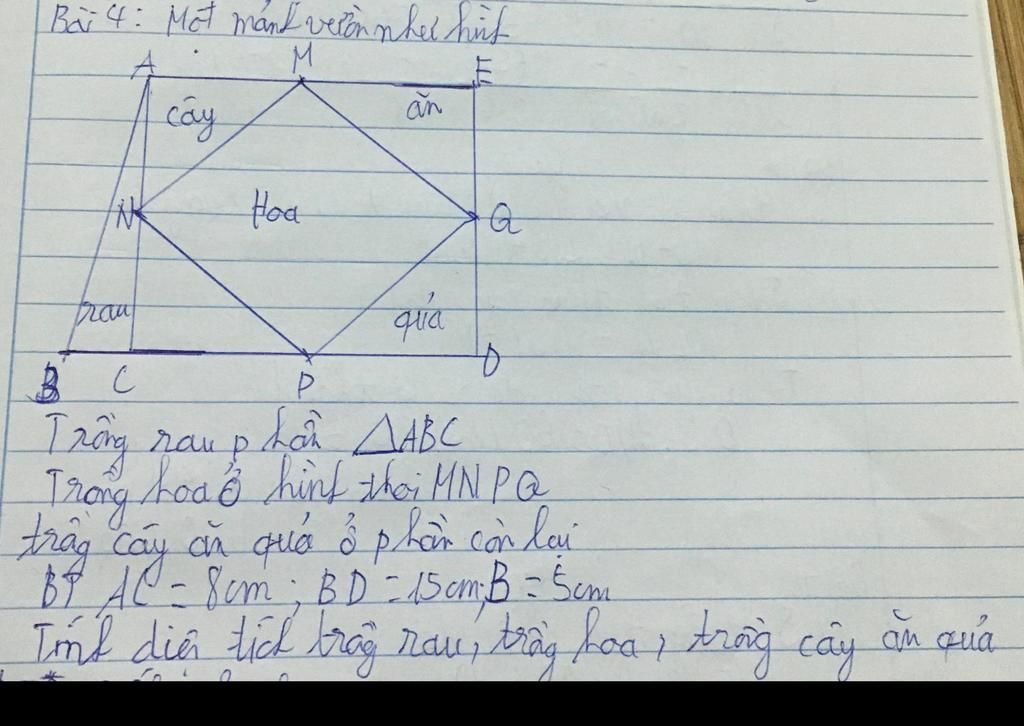 Bài 4: Một mảnh vườn như hình
A M E
cây ăn
N Hoa Q
rau quả
B C P D
Trồng rau phần △ABC
Trồng hoa ở hình thoi MNPQ
trồng cây ăn quả ở phần còn lại
BT AC = 8cm; BD = 15cm; B = 5cm
Tính diện tích trồng rau, trồng hoa, trồng cây ăn quả